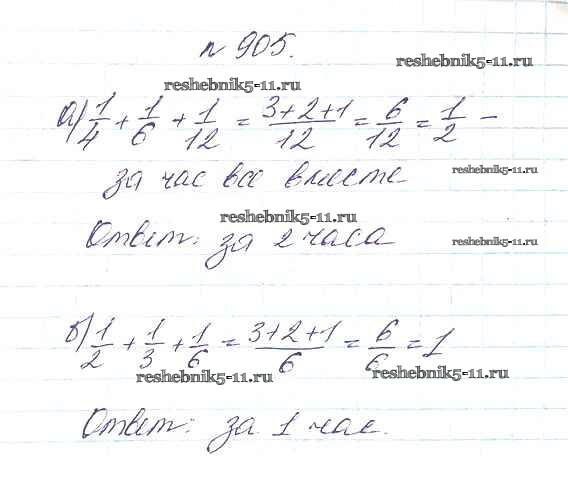 № 905.
reshebnik5-11.ru
reshebnik5-11.ru
а) 1/4 + 1/6 + 1/12 = (3+2+1)/12 = 6/12 = 1/2 -
за час все вместе
reshebnik5-11.ru
reshebnik5-11.ru
Ответ: за 2 часа
reshebnik5-11.ru
б) 1/2 + 1/3 + 1/6 = (3+2+1)/6 = 6/6 = 1
reshebnik5-11.ru
reshebnik5-11.ru
Ответ: за 1 час.